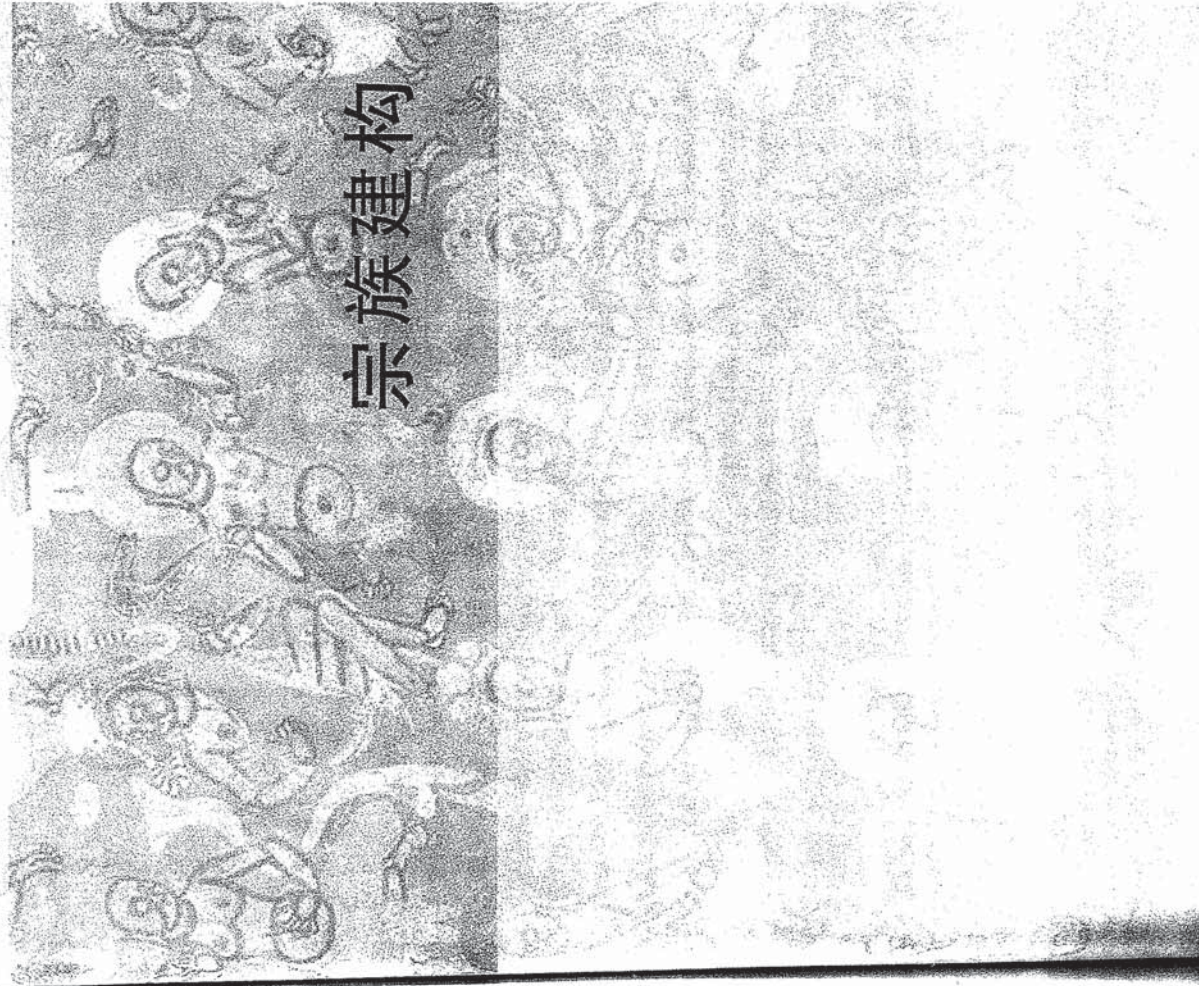 宗族建构